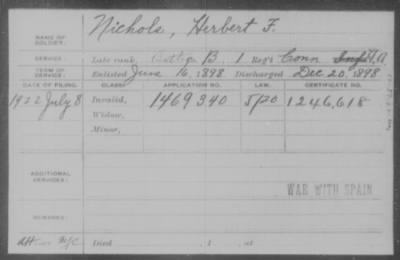 Nichols, Herbert F.
NAME OF SOLDIER:
SERVICE: Late rank, Batty B, 1 Reg't Conn Inf H.A.
TERM OF SERVICE: Enlisted June 16, 1898. Discharged Dec. 20, 1898
DATE OF FILING. CLASS. APPLICATION NO. LAW. CERTIFICATE NO.
1922 July 8 Invalid, 1469340 5/20 1246,618
Widow,
Minor,
ADDITIONAL SERVICES:
WAR WITH SPAIN
REMARKS:
Died , 1 , at